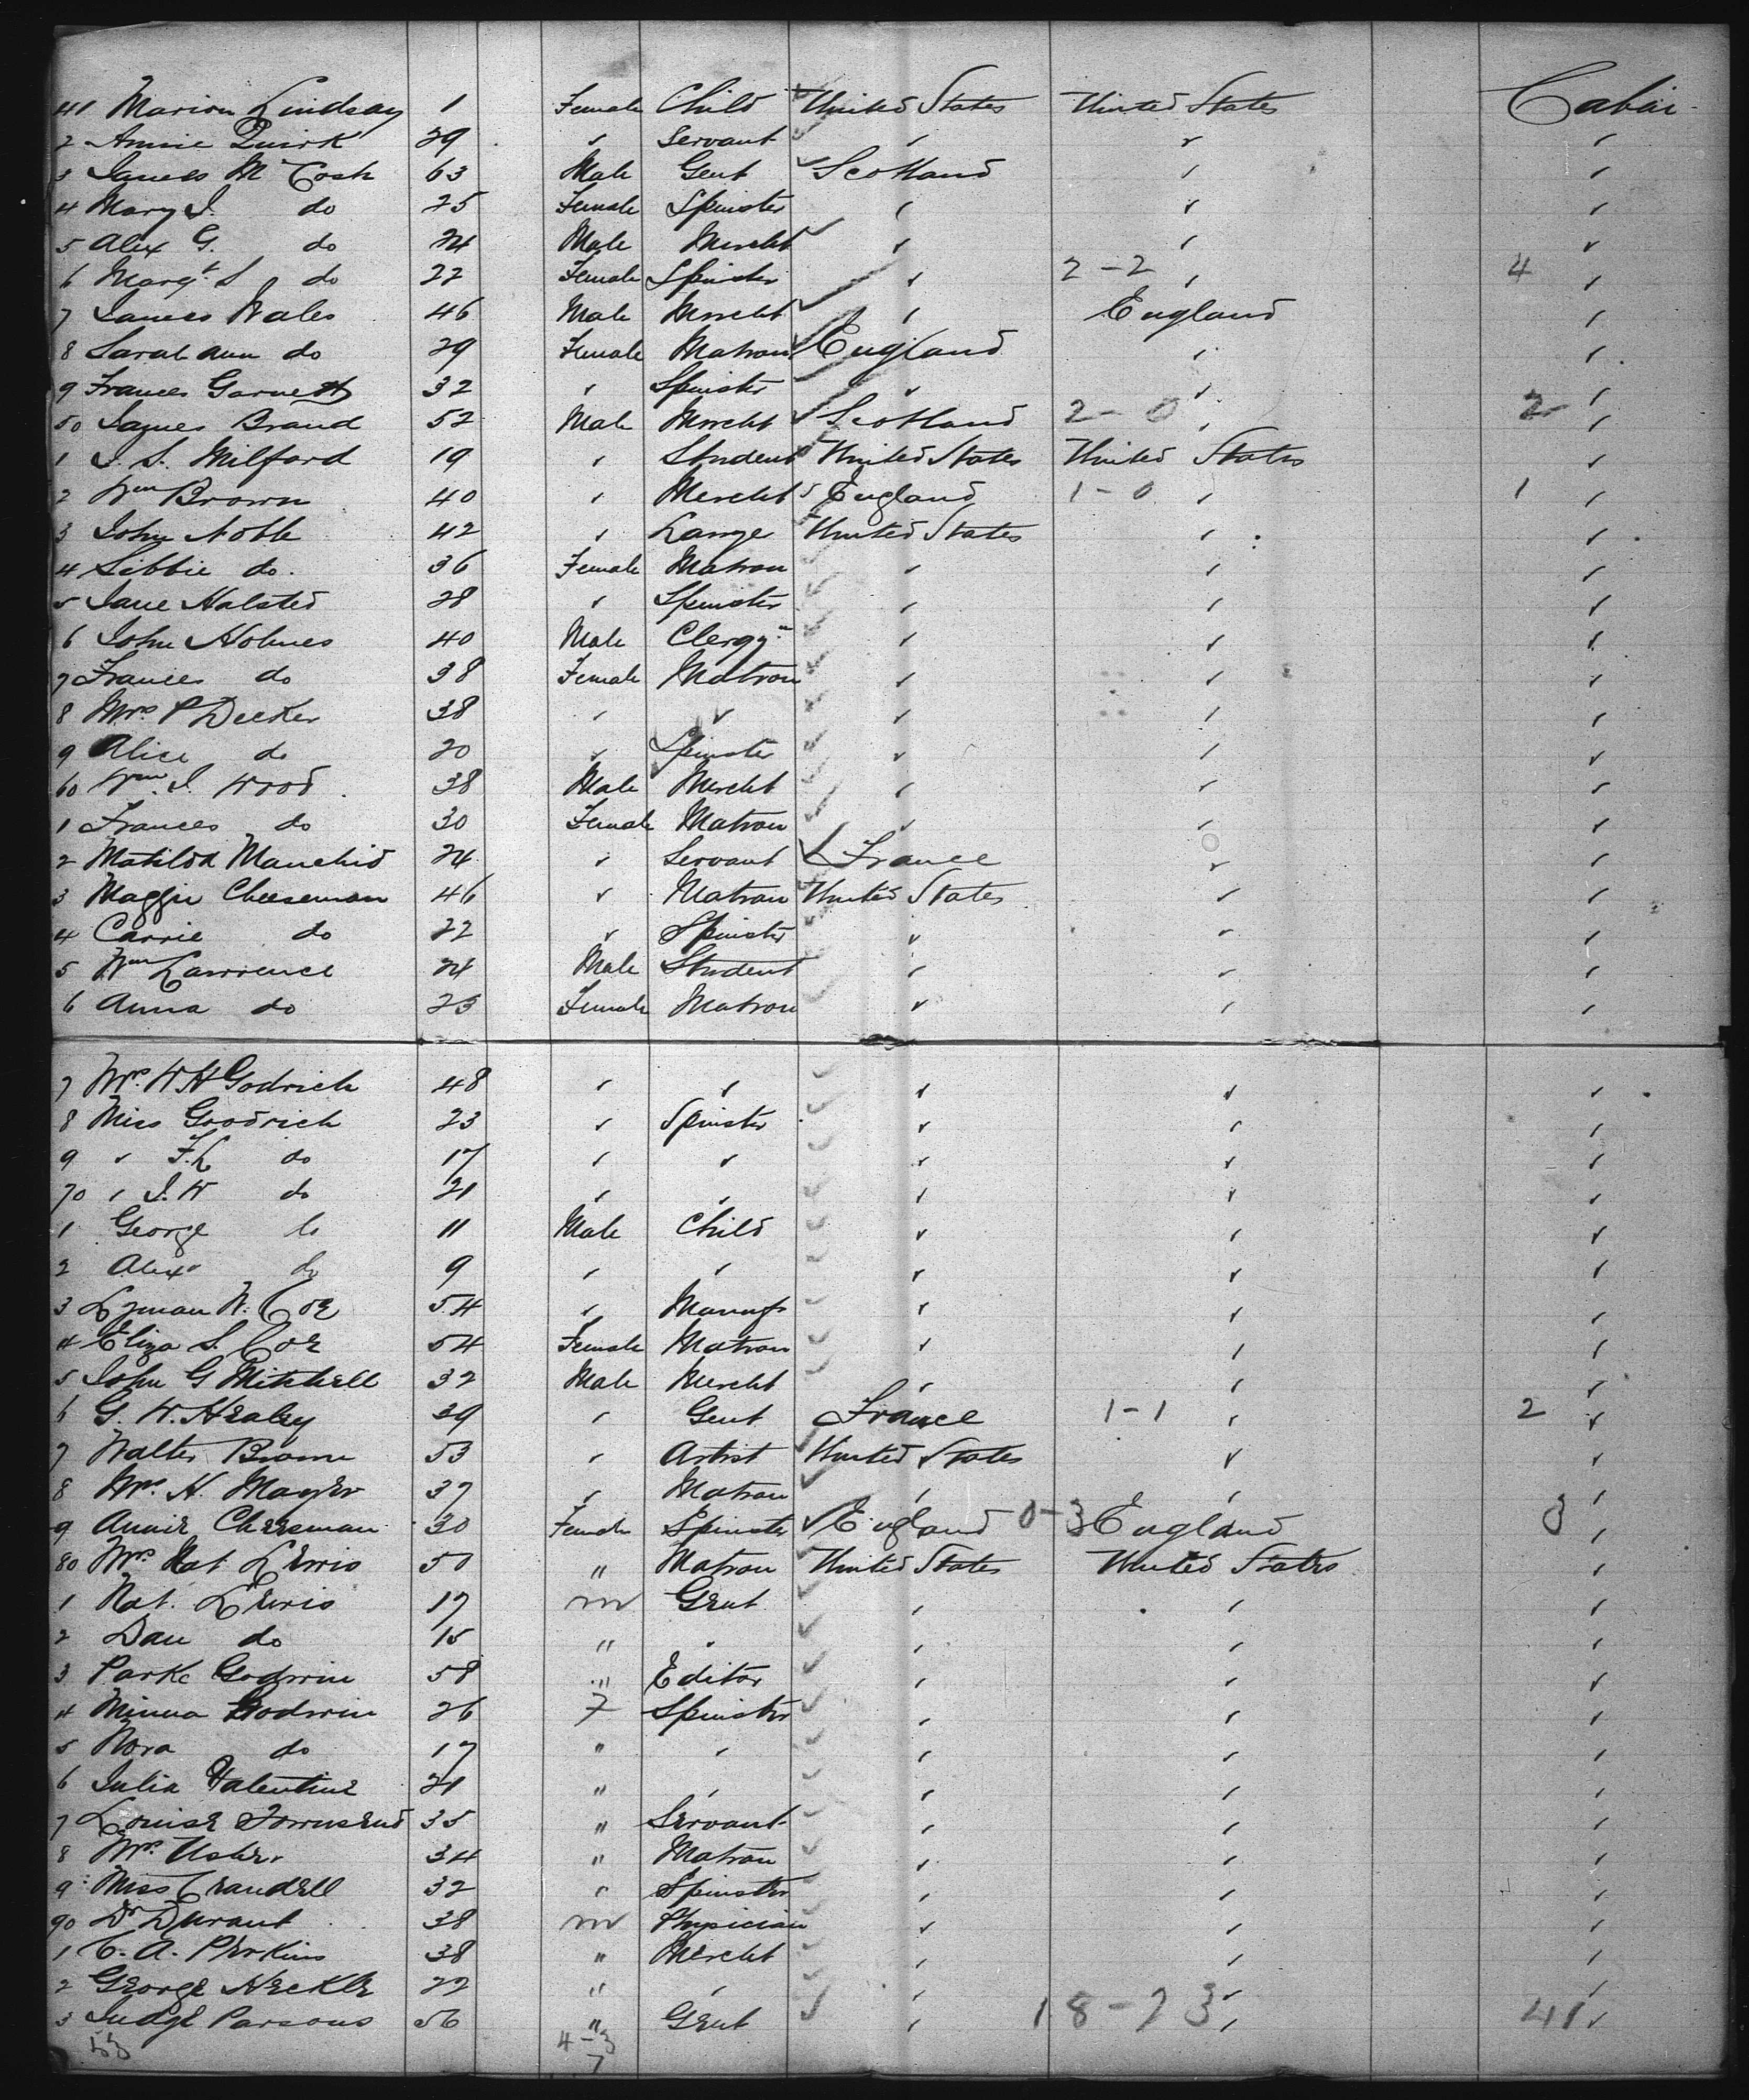 41 Marion Lindsay 1 Female Child United States United States Cabin
2 Annie Quirk 29 " Servant " " "
3 James McCosh 63 Male Gent Scotland " "
4 Mary J. do 25 Female Spinster " " "
5 Alex G. do 24 Male Mercht " " "
6 Margt S do 22 Female Spinster " 2-2 " 4 "
7 James Wales 46 Male Mercht " England "
8 Sarah Ann do 29 Female Matron England " "
9 Frances Garnett 32 " Spinster " " "
50 James Brand 52 Male Mercht Scotland 2-0 " 2 "
1 J. S. Milford 19 " Student United States United States "
2 Wm Brown 40 " Mercht England 1-0 " 1 "
3 John Noble 42 " United States " "
4 Libbie do. 36 Female Matron " " "
5 Jane Halsted 28 " Spinster " " "
6 John Holmes 40 Male Clergyn " " "
7 Frances do 38 Female Matron " " "
8 Mrs P Decker 38 " " " " "
9 Alice do 20 " Spinster " " "
60 Wm. J. Wood 38 Male Mercht " " "
1 Frances do 30 Female Matron " " "
2 Matilda Manchid 24 " Servant France " "
3 Maggie Cheeseman 46 " Matron United States " "
4 Carrie do 22 " Spinster " " "
5 Wm Lawrence 24 Male Student " " "
6 Anna do 23 Female Matron " " "
7 Mrs. W. H Godrich 48 " " " " "
8 Miss Goodrich 23 " Spinster " " "
9 " F. L do 17 " " " " "
70 " J. W do 21 " " " " "
1 George do 11 Male Child " " "
2 Alexr do 9 " " " " "
3 Lyman W. Coe 54 " Manufr " " "
4 Eliza S. Coe 54 Female Matron " " "
5 John G Mitchell 32 Male Mercht " " "
6 G. W. Healey 39 " Gent France 1-1 " 2 "
7 Walter Brown 53 " Artist United States " "
8 Mrs. H. Mayer 37 " Matron " " "
9 Annie Cheesman 30 Female Spinster England 0-3 England 3 "
80 Mrs Nat Lewis 50 " Matron United States United States "
1 Nat. Lewis 17 m Gent " " "
2 Dan do 15 " " " " "
3 Parke Godwin 58 " Editor " " "
4 Minna Godwin 26 F Spinster " " "
5 Nora do 17 " " " " "
6 Julia Valentine 21 " " " " "
7 Louise Townsend 35 " Servant " " "
8 Mrs. Usher 34 " Matron " " "
9 Miss Crandell 32 " Spinster " " "
90 Dr Durant 38 m Physician " " "
1 C. A. Perkins 38 " Mercht " " "
2 George Heckle 22 " " " " "
3 Judge Parsons 56 " Gent " 18-23 " 41 "
53 4-3
7